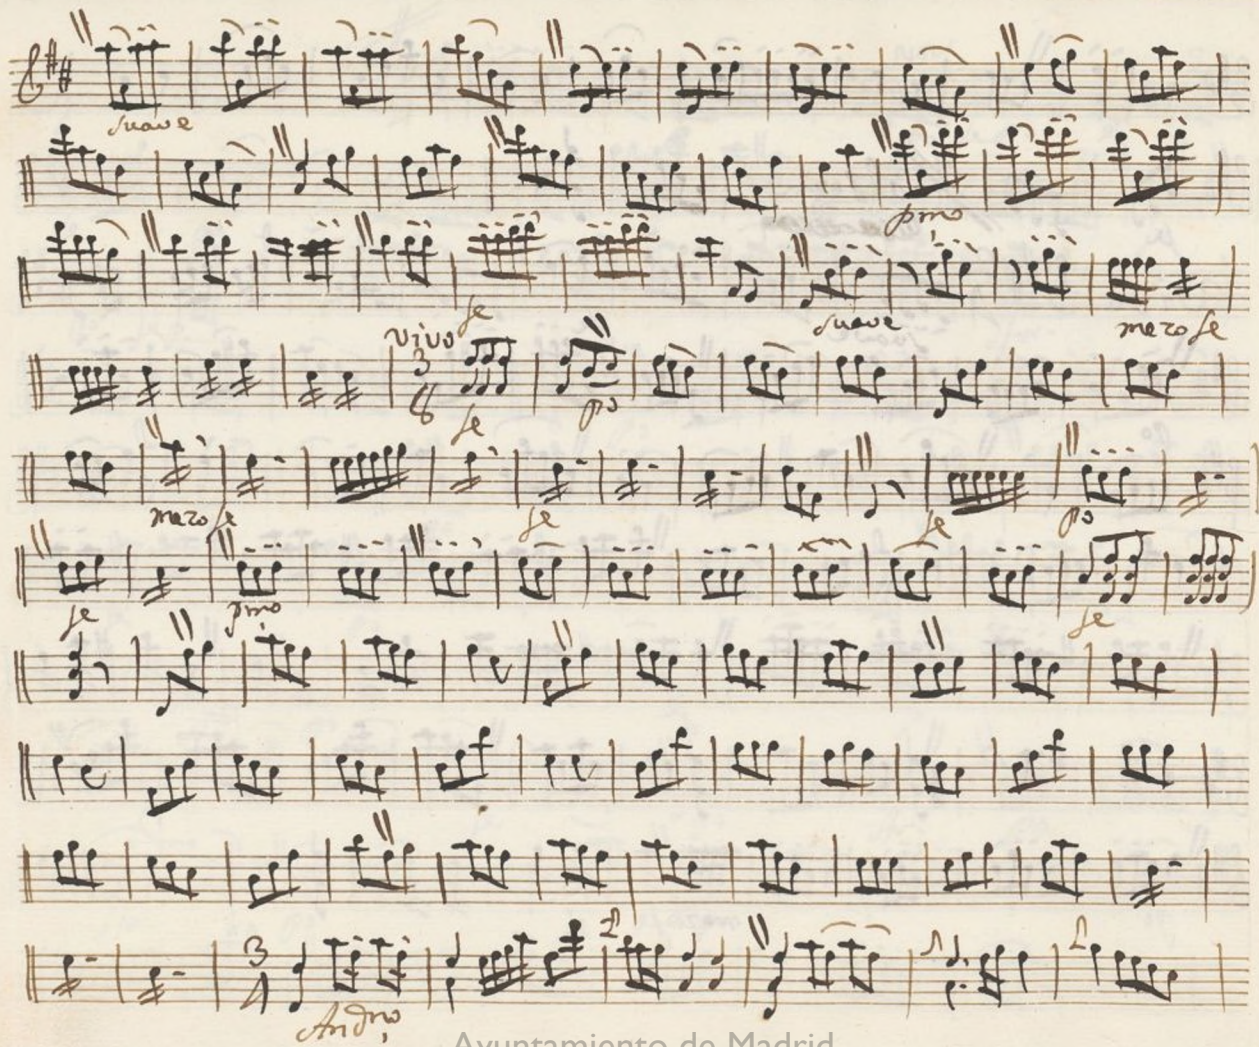 suave
pmo
fe suave mezo fe
vivo
3
8 fe po
mezo fe fe fe po
fe pmo fe
3
4 Andno
Ayuntamiento de Madrid